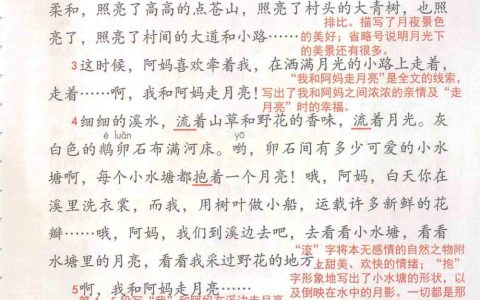 柔和，照亮了高高的点苍山，照亮了村头的大青树，也照
亮了，照亮了村间的大道和小路……
排比。描写了月夜景色
的美好；省略号说明月光下
的美景还有很多。
3这时候，阿妈喜欢牵着我，在洒满月光的小路上走着，
走着……啊，我和阿妈走月亮！
“我和阿妈走月亮”是全文的线索，
写出了我和阿妈之间浓浓的亲情及“走
月亮”时的幸福。
4细细的溪水，流着山草和野花的香味，流着月光。灰
é luǎn yō
白色的鹅卵石布满河床。哟，卵石间有多少可爱的小水
塘啊，每个小水塘都抱着一个月亮！哦，阿妈，白天你在
溪里洗衣裳，而我，用树叶做小船，运载许多新鲜的花
瓣……哦，阿妈，我们到溪边去吧，去看看小水塘，看看
水塘里的月亮，看看我采过野花的地方。
“流”字将本无感情的自然之物附
上甜美、欢快的情绪；“抱”
字形象地写出了小水塘的形状，以
及倒映在水中的月影。一切都是那
5啊，我和阿妈走月亮……